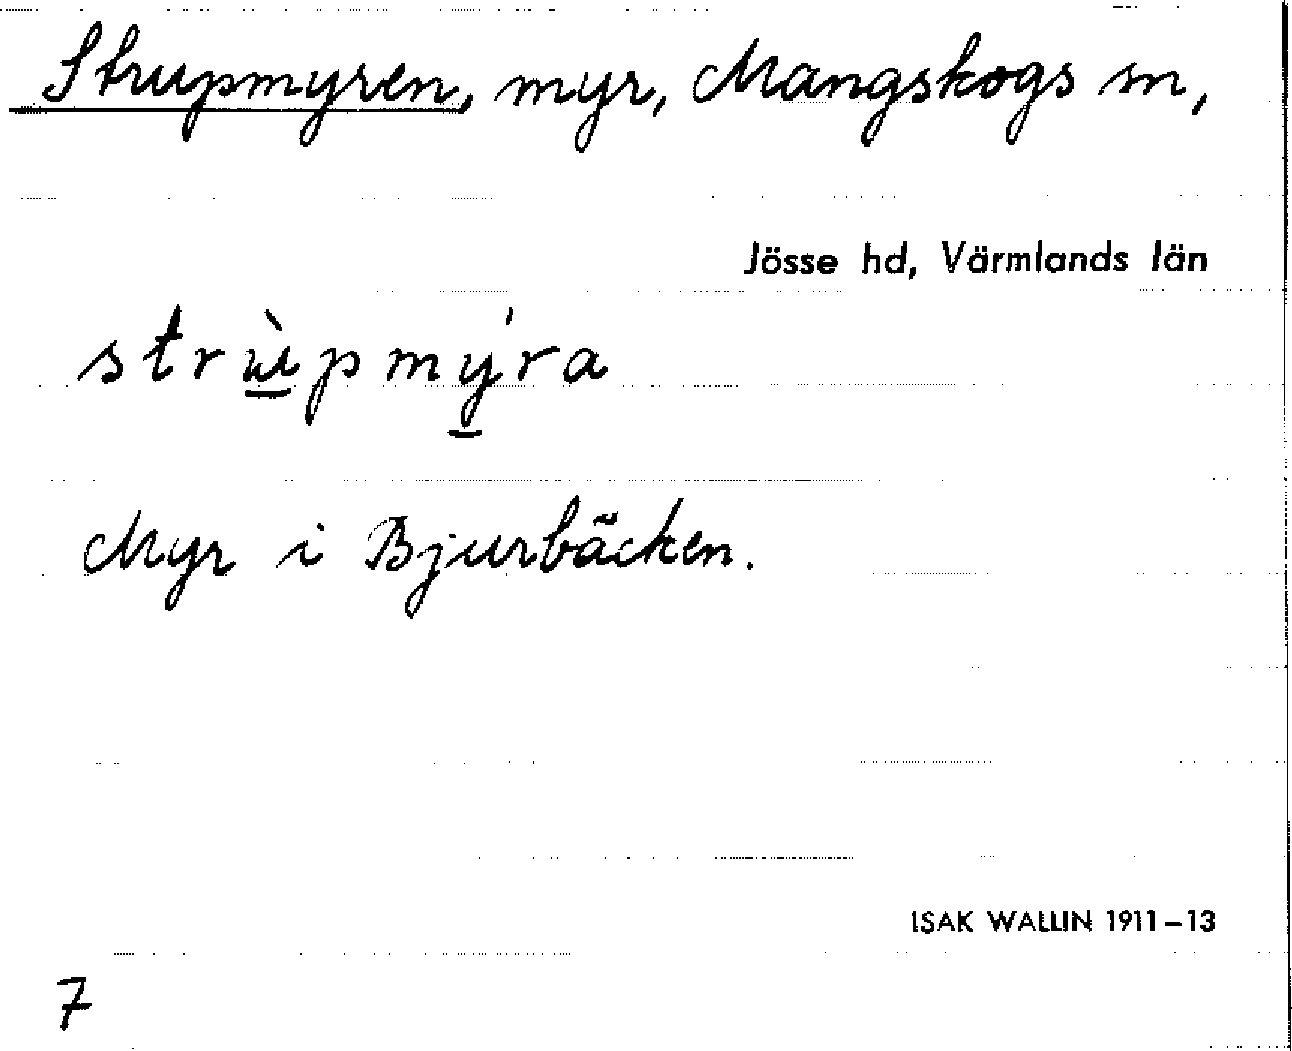 Strupmyren, myr, Mangskogs sn,
Jösse hd, Värmlands län
strɯ̱̀pmý̱ra
Myr i Bjurbäcken.
ISAK WALLIN 1911–13
7